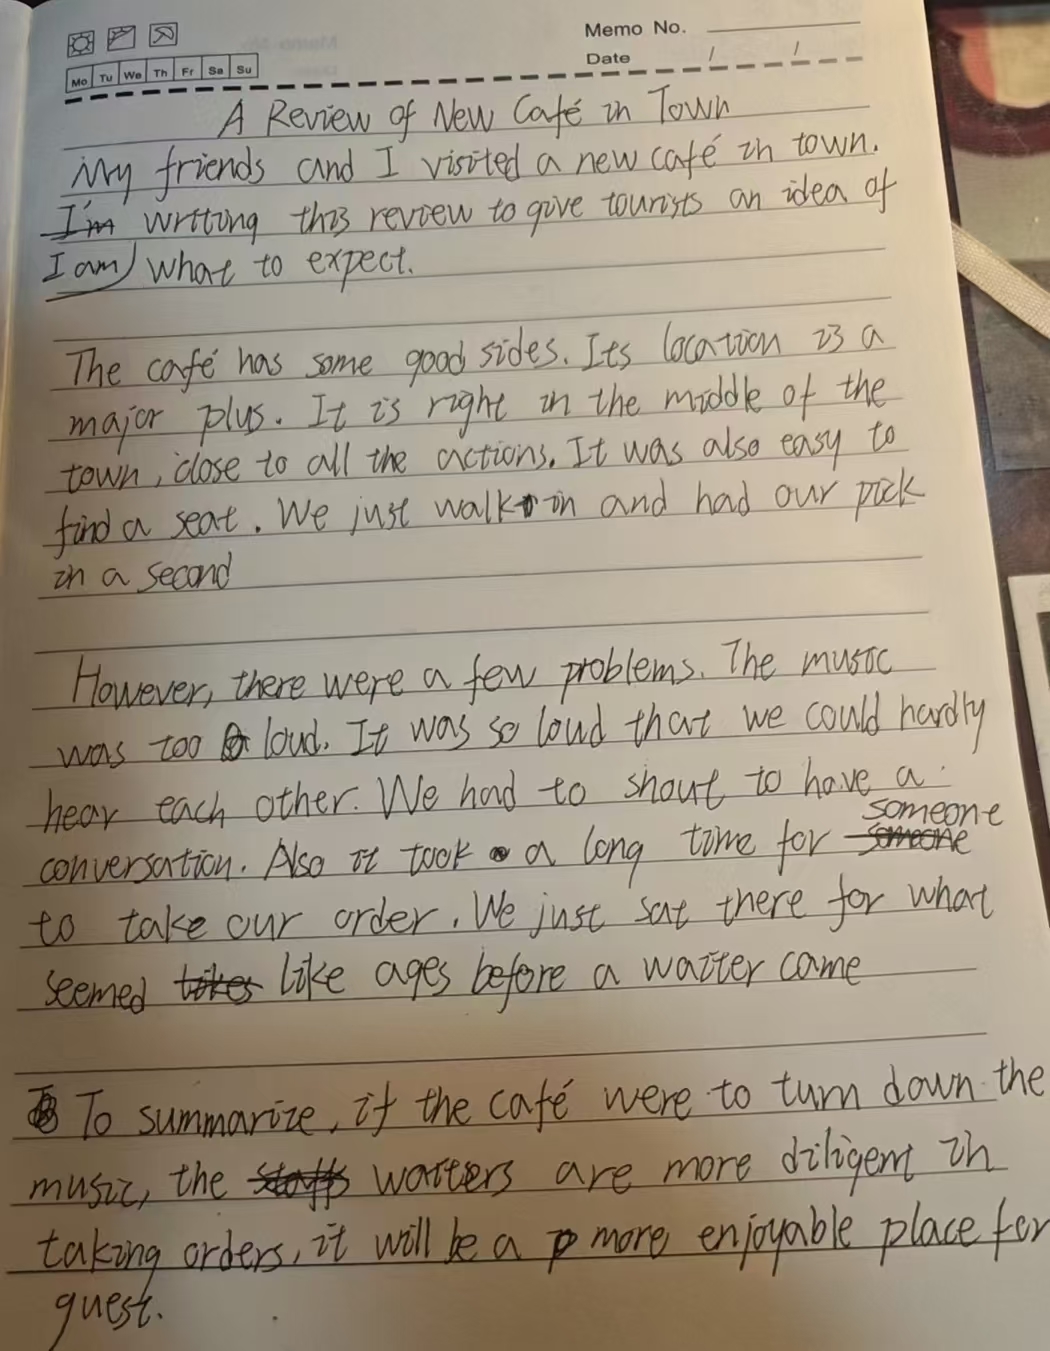 Memo No.
Mo Tu We Th Fr Sa Su
Date / /
A Review of New Café in Town
My friends and I visited a new café in town.
I'm writing this review to give tourists an idea of
I am what to expect.
The café has some good sides. Its location is a
major plus. It is right in the middle of the
town, close to all the actions. It was also easy to
find a seat. We just walk in and had our pick
in a second
However, there were a few problems. The music
was too loud. It was so loud that we could hardly
hear each other. We had to shout to have a
someone
conversation. Also it took a long time for someone
to take our order. We just sat there for what
seemed takes like ages before a waiter came
To summarize, if the café were to turn down the
music, the staffs waiters are more diligent in
taking orders, it will be a more enjoyable place for
guest.